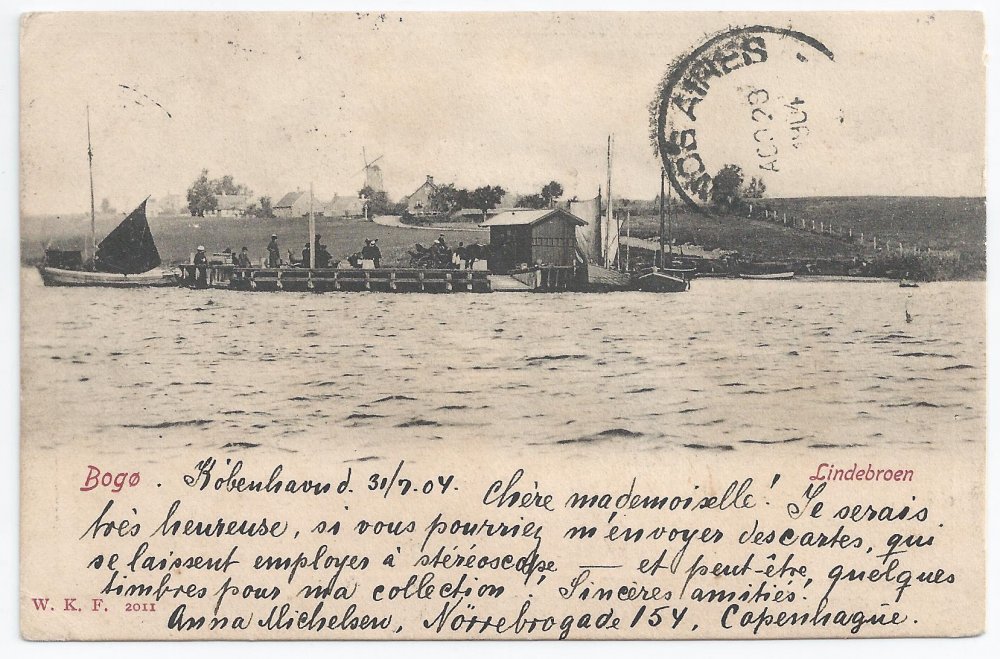 BUENOS AIRES
AGO 23
1904
Bogø
Lindebroen
Kóbenhavn d. 31/7.04. Chère mademoiselle! Je serais
très heureuse, si vous pourriez m'envoyer des cartes, qui
se laissent employer à stéréoscope — et peut-être, quelques
timbres pour ma collection! Sincères amitiés!
W. K. F. 2011
Anna Michelsen, Nörrebrogade 154, Copenhague.